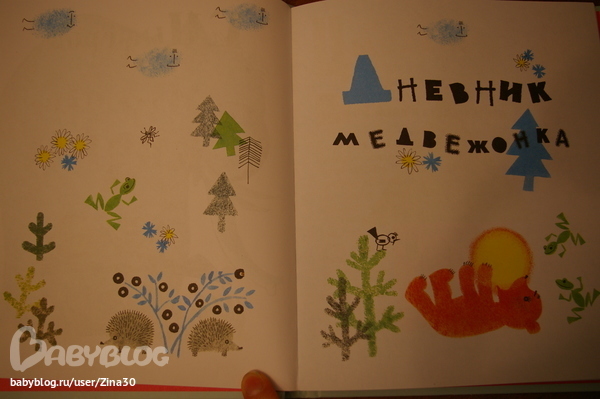 Дневник
медвежонка
BABYBLOG
babyblog.ru/user/Zina30